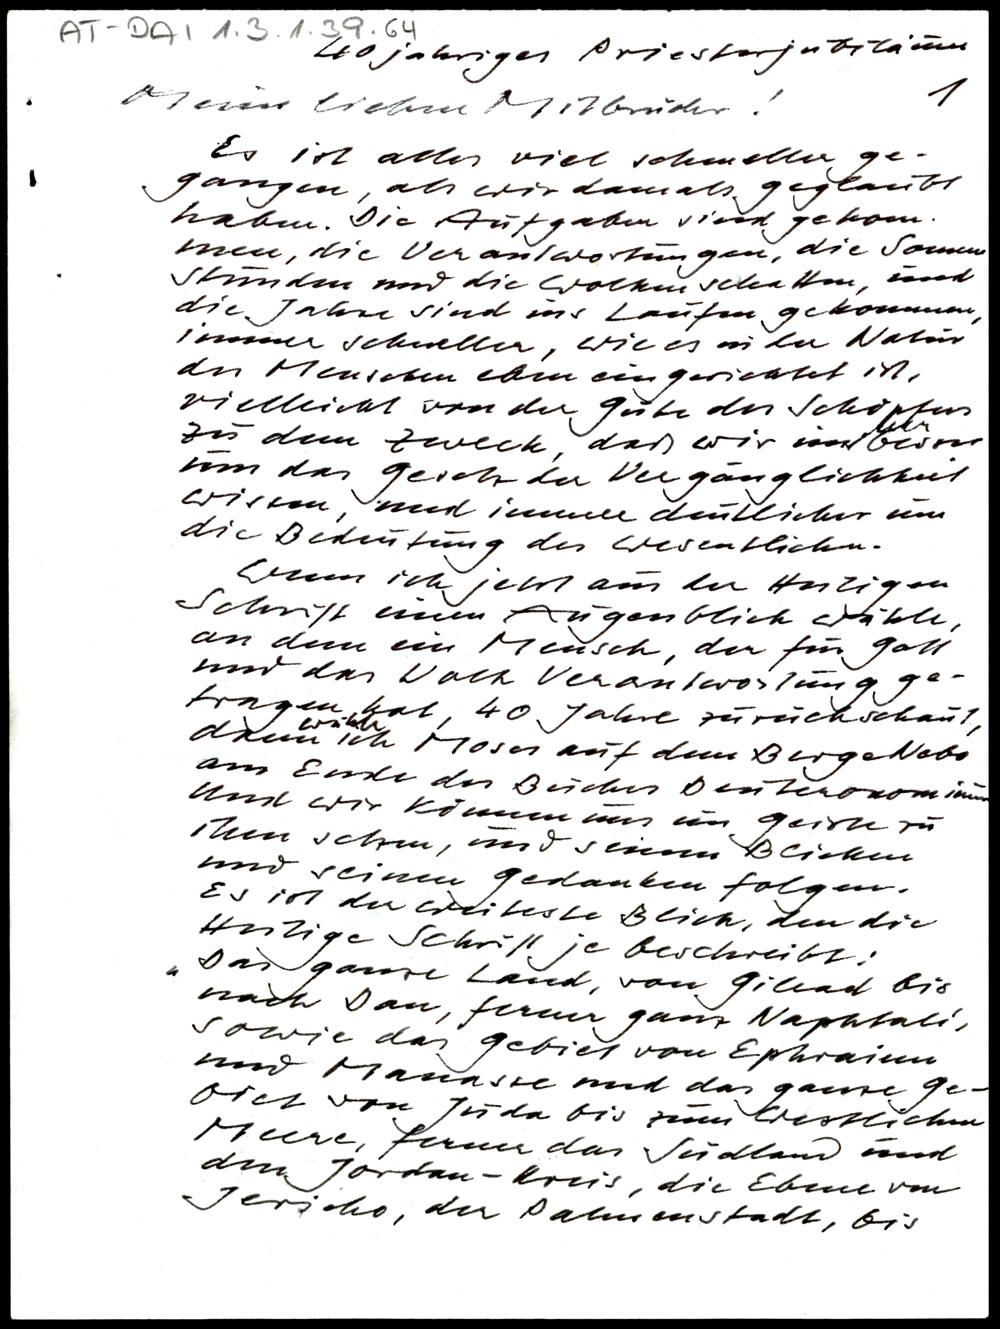 AT-DAI 1.3.1.39.64
40jähriges Priesterjubiläum
1
Meine lieben Mitbrüder!
Es ist alles viel schneller ge-
gangen, als wir damals geglaubt
haben. Die Aufgaben sind gekom-
men, die Verantwortungen, die Sonnen
stunden und die Wolkenschatten, und
die Jahre sind ins Laufen gekommen,
immer schneller, wie es in der Natur
des Menschen eben eingerichtet ist,
vielleicht von der Güte des Schöpfers
zu dem Zweck, daß wir immer besser
um das Gesetz der Vergänglichkeit
wissen, und immer deutlicher um
die Bedeutung des Wesentlichen.
Wenn ich jetzt aus der Heiligen
Schrift einen Augenblick wähle,
an dem ein Mensch, der für Gott
und das Volk Verantwortung ge-
tragen hat, 40 Jahre zurückschaut,
dann wähle ich Moses auf dem Berge Nebo
am Ende des Buches Deuteronomium
Und wir können uns im Geiste zu
ihm setzen, und seinen Blicken
und seinen Gedanken folgen.
Es ist der weiteste Blick, den die
Heilige Schrift je beschreibt:
"Das ganze Land, von Gilead bis
nach Dan, ferner ganz Naphtali,
sowie das Gebiet von Ephraim
und Manasse und das ganze Ge-
biet von Juda bis zum Westlichen
Meere, ferner das Südland und
den Jordan-Kreis, die Ebene von
Jericho, der Palmenstadt, bis